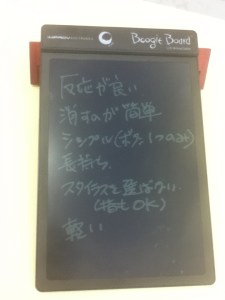 Boogie Board
反応が良い
消すのが簡単
シンプル(ボタン1つのみ)
長持ち
スタイラスを選ばない
(指もOK)
軽い